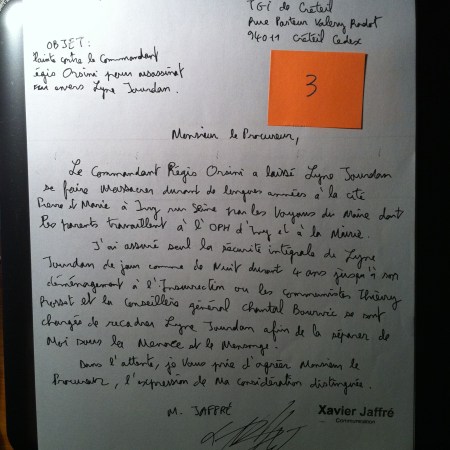 TGI de Créteil
Rue Pasteur Valery Radot
94011 Créteil Cedex
OBJET:
Plainte contre le Commandant
Régis Orsini pour assassinat
envers Lyne Jourdan.
3
Monsieur le Procureur,
Le Commandant Régis Orsini a laissé Lyne Jourdan
se faire Massacrer durant de longues années à la cité
Pierre et Marie à Ivry sur Seine par les Voyous du Maire dont
les parents travaillent à l'OPH d'Ivry et à la Mairie.
J'ai assuré seul la sécurité intégrale de Lyne
Jourdan de jour comme de Nuit durant 4 ans jusqu'à son
déménagement à l'Insurrection ou les communistes Thierry
et la conseillère général Chantal Bourvic se sont
chargés de recadrer Lyne Jourdan afin de la séparer de
Moi sous la Menace et le Mensonge.
Dans l'attente, je Vous prie d'agréer Monsieur le
Procureur, l'expression de Ma considération distinguée.
M. JAFFRÉ
Xavier Jaffré
Communication